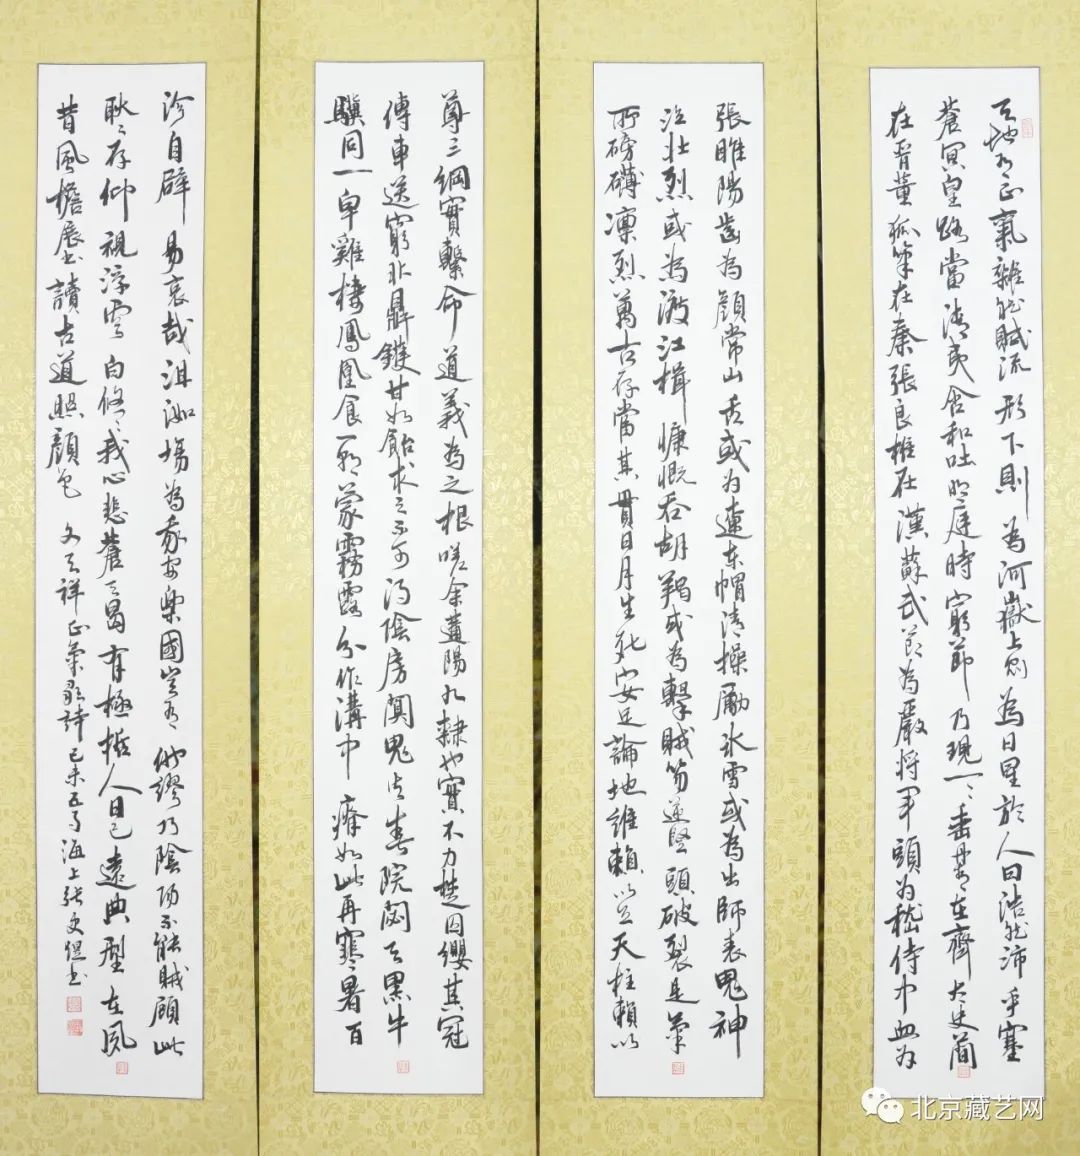 天地有正氣雜然賦流形下則為河嶽上則為日星於人曰浩然沛乎塞
蒼冥皇路當清夷含和吐明庭時窮節乃現一々垂丹青在齊太史簡
在晉董狐筆在秦張良椎在漢蘇武節為嚴將軍頭為嵇侍中血为
張睢陽齒為顏常山舌或为遼东帽清操勵冰雪或為出師表鬼神
泣壯烈或為渡江楫慷慨吞胡羯或為擊賊笏逆豎頭破裂是氣
所磅礴凜烈萬古存當其貫日月生死安足論地維賴以立天柱賴以
尊三綱實繫命道義為之根嗟余遘陽九隸也實不力楚囚纓其冠
傳車送窮北鼎鑊甘如飴求之不可得陰房闃鬼火春院閟天黑牛
驥同一皁雞棲鳳凰食一朝蒙霧露分作溝中瘠如此再寒暑百
沴自辟易哀哉沮洳場為我安樂國豈有他繆巧陰陽不能賊顧此
耿々存仰視浮雲白悠々我心悲蒼天曷有極哲人日已遠典型在夙
昔風檐展书讀古道照顏色 文天祥正氣歌詩己未五月海上张文书
北京藏艺网